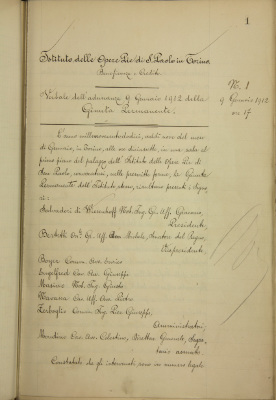 1
Istituto delle Opere Pie di S. Paolo in Torino
Beneficenza e Credito
N. 1
9 Gennaio 1912
ore 17
Verbale dell'adunanza 9 Gennaio 1912 della
Giunta Permanente.
L'anno millenovecentododici, addì nove del mese
di Gennaio, in Torino, alle ore diciassette, in una sala al
primo piano del palazzo dell'Istituto delle Opere Pie di
San Paolo, convocatasi, nelle prescritte forme, la Giunta
Permanente dell'Istituto stesso, risultano presenti i Signo
ri:
Salvadori di Wiesenhoff Nob. Ing. Gr. Uff. Giacomo,
Presidente,
Bertetti Gr. Uff. Avv. Michele, Senatore del Regno,
Vicepresidente,
Boyer Comm. Avv. Enrico
Engelfred Cav. Rag. Giuseppe
Nob. Ing.
Cav. Uff. Avv. Pietro
Comm. Ing. Giuseppe,
Amministratori,
Cav. Avv. Celestino, Direttore Generale, Segre,
tario assunto.
Constatato che gli intervenuti sono in numero legale